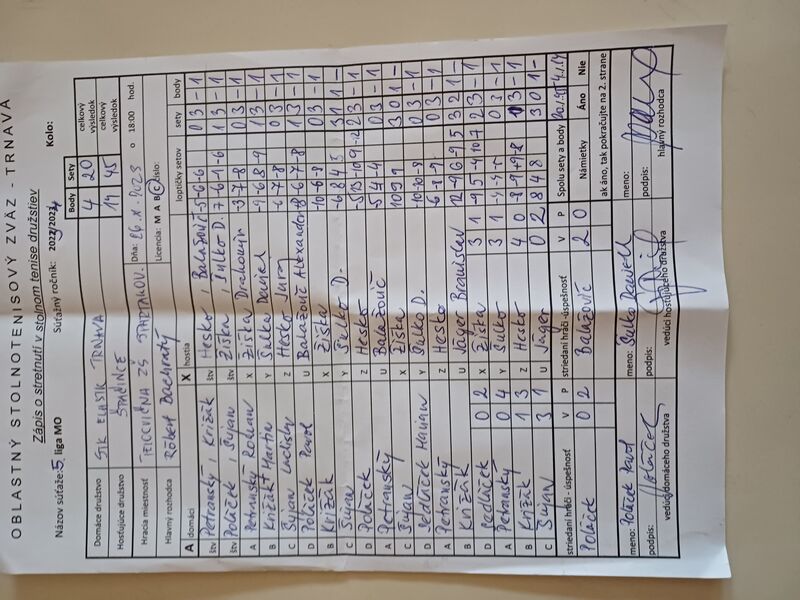 OBLASTNÝ STOLNOTENISOVÝ ZVÄZ - TRNAVA
Zápis o stretnutí v stolnom tenise družstiev
Názov súťaže: 5. liga MO Súťažný ročník: Kolo:
Body Sety
Domáce družstvo STK ELASTIK TRNAVA 4 20 celkový výsledok
Hosťujúce družstvo ŠPAČINCE 14 45 celkový výsledok
Hracia miestnosť TELOCVIČŇA ZŠ SPARTAKOV. Dňa: 26.X.2023 o 18:00 hod.
Hlavný rozhodca Róbert Bachratý Licencia: M A B C číslo:
A domáci X hostia loptičky setov sety body
štv Petranský, Križák štv Hesko, Balažovič -5 -6 -6 0 3 - 1
štv Poláček, Šujan štv Žiška, Šulko D. 1 3 - 1
A Petranský Roman X Žiška Drahomír -3 -7 -8 0 3 - 1
B Križák Martin Y Šulka Daniel -9 -6 8 -9 1 3 - 1
C Šujan Ladislav Z Hesko Juraj -6 -7 -8 0 3 - 1
D Poláček Pavol U Balažovič Alexander 1 3 - 1
B Križák X Žiška -10 -6 -8 0 3 - 1
C Šujan Y Šulko D. 3 1 1 -
D Poláček Z Hesko 2 3 - 1
A Petranský U Balažovič 0 3 - 1
C Šujan X Žiška 3 0 1 -
D Sedláček Marian Y Šulko D. -10 -10 -8 0 3 - 1
A Petranský Z Hesko -6 -8 -9 0 3 - 1
B Križák U Jáger Branislav 12 -9 6 -9 5 3 2 1 -
D Sedláček 0 2 X Žiška 3 1 2 3 - 1
A Petranský 0 4 Y Šulko 3 1 0 3 - 1
B Križák 1 3 Z Hesko 4 0 - 1
C Šujan 3 1 U Jáger 0 2 8 4 8 3 0 1 -
striedaní hráči - úspešnosť V P striedaní hráči - úspešnosť V P Spolu sety a body
Poláček 0 2 Balažovič 2 0 Námietky Áno Nie
ak áno, tak pokračujte na 2. strane
meno: Poláček Pavol meno: Šulko Daniel meno:
podpis: podpis: podpis:
vedúci domáceho družstva vedúci hosťujúceho družstva hlavný rozhodca